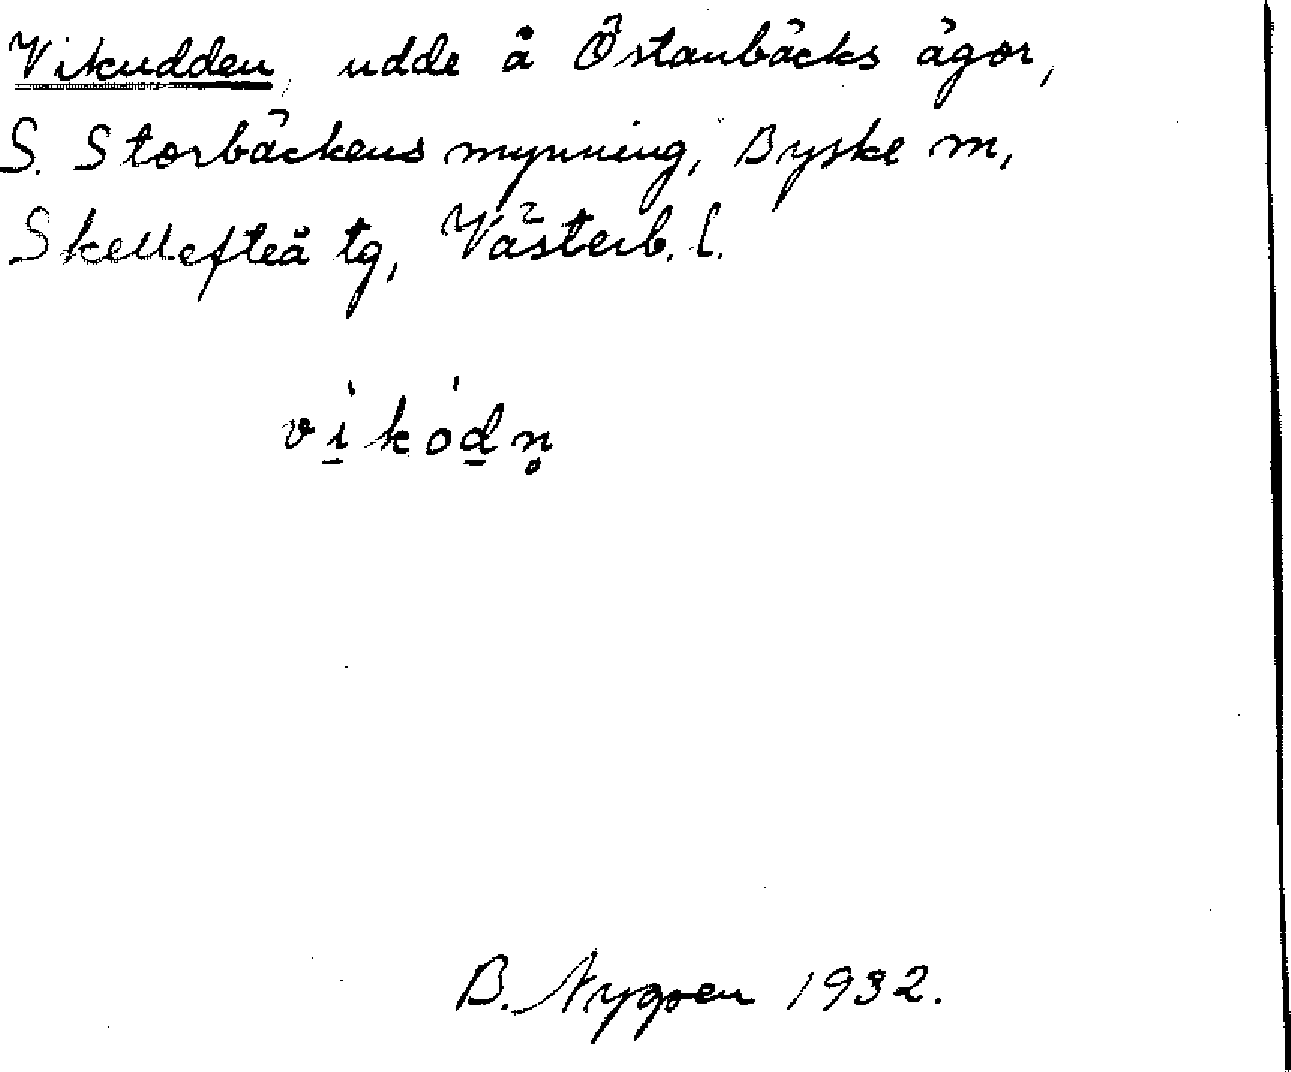 Vikudden, udde å Östanbäcks ägor,
S. Storbäckens mynning, Byske m,
Skellefteå tg, Västerb. l.
vi̠`kó̍d̠n̥
B. Nygren 1932.